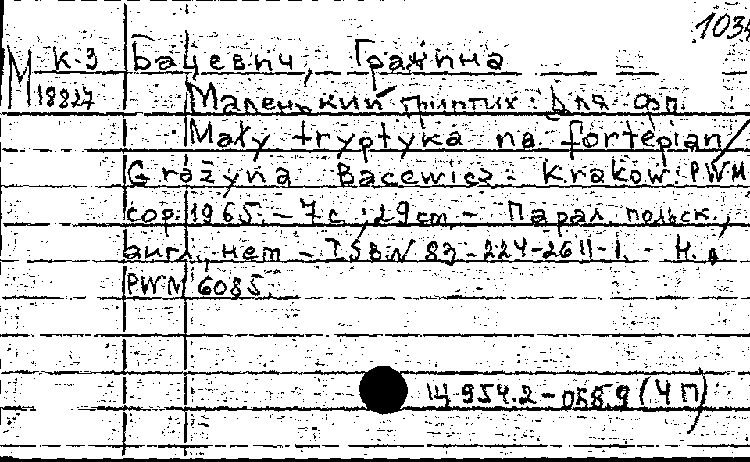 1034
М К-3 Бацевич, Гражина
18827 Маленький триптих: Для фп.
Mały tryptyka na fortepian /
Grażyna Bacewicz. - Kraków: PWM
cop. 1965. - 7 с.; 29 cm. - Парал. польск.,
англ., нем. - ISBN 83-224-2611-1. - Н. д.
PWM 6085.
Щ 954.2-058.9 (4П)